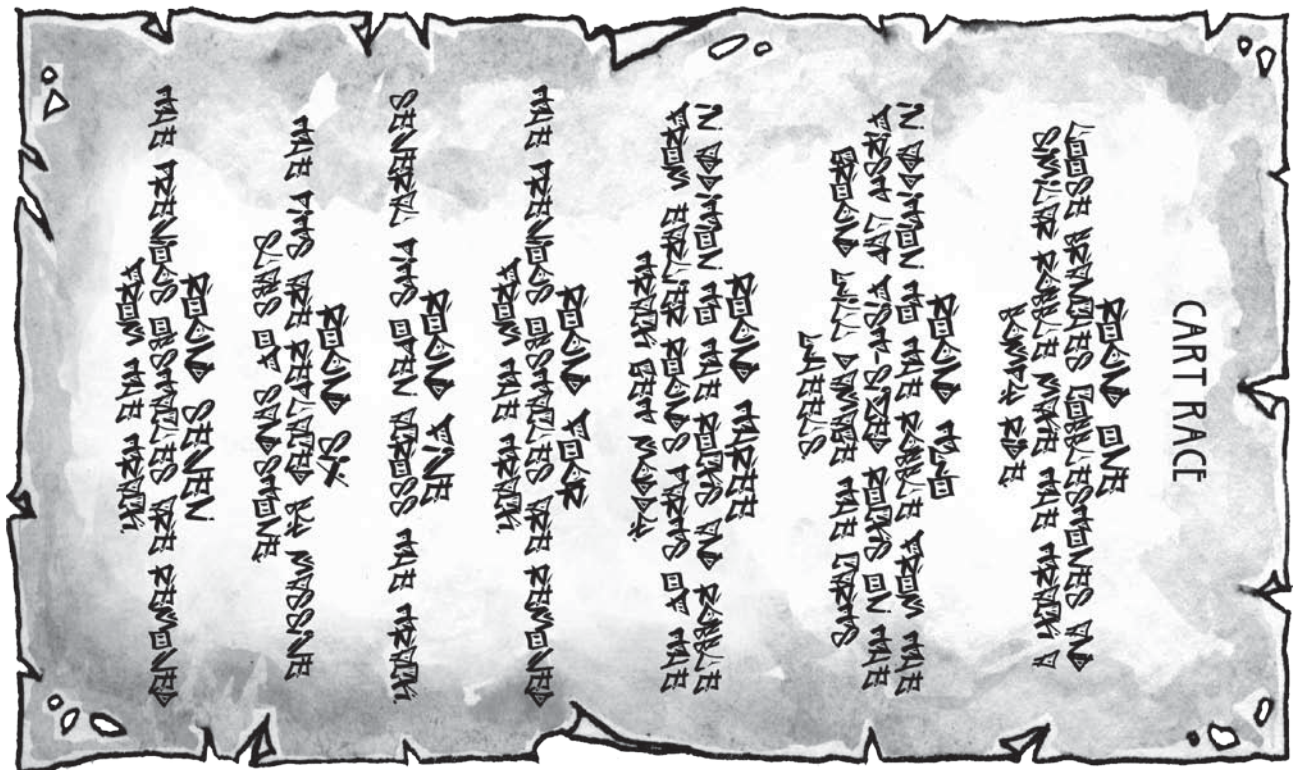 CART RACE
ROUND ONE
LOOSE BRANCHES COBBLESTONES AND
SIMILAR RUBBLE MAKE THE TRACK A
BUMPY RIDE
ROUND TWO
IN ADDITION TO THE RUBBLE FROM THE
FIST-SIZED ROCKS ON THE
GROUND DAMAGE THE CARTS
WHEELS
ROUND THREE
IN ADDITION TO THE ROCKS AND RUBBLE
FROM EARLIER ROUNDS OF THE
TRACK GET
ROUND FOUR
THE PREVIOUS OBSTACLES ARE REMOVED
FROM THE TRACK
ROUND FIVE
SEVERAL PITS OPEN ACROSS THE TRACK
ROUND SIX
THE PITS ARE REPLACED BY MASSIVE
SLABS OF SANDSTONE
ROUND SEVEN
THE PREVIOUS OBSTACLES ARE REMOVED
FROM THE TRACK